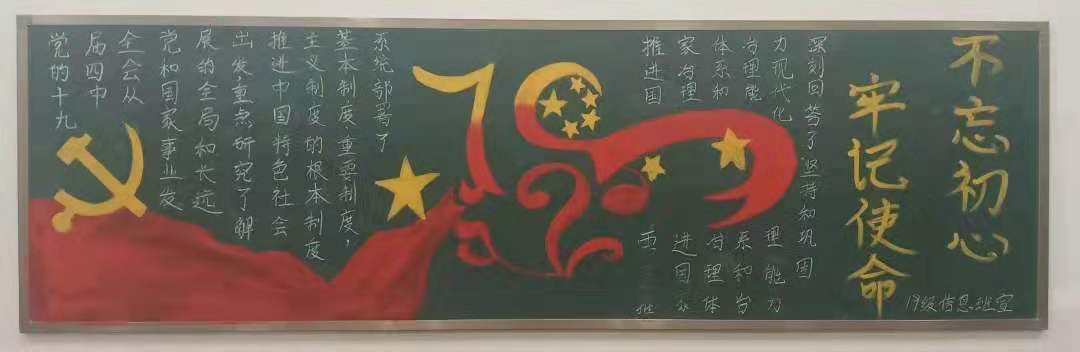 不忘初心
牢记使命
党的十九
届四中
全会从
党和国家事业发
展的全局和长远
出发重点研究了解
推进中国特色社会
主义制度的根本制度
基本制度,重要制度,
系统部署了
70
推进国
家治理
体系和
治理能
力现代化
深刻回答了坚持和巩固
推
进国家
治理体
系和治
理能力
19级信息班宣